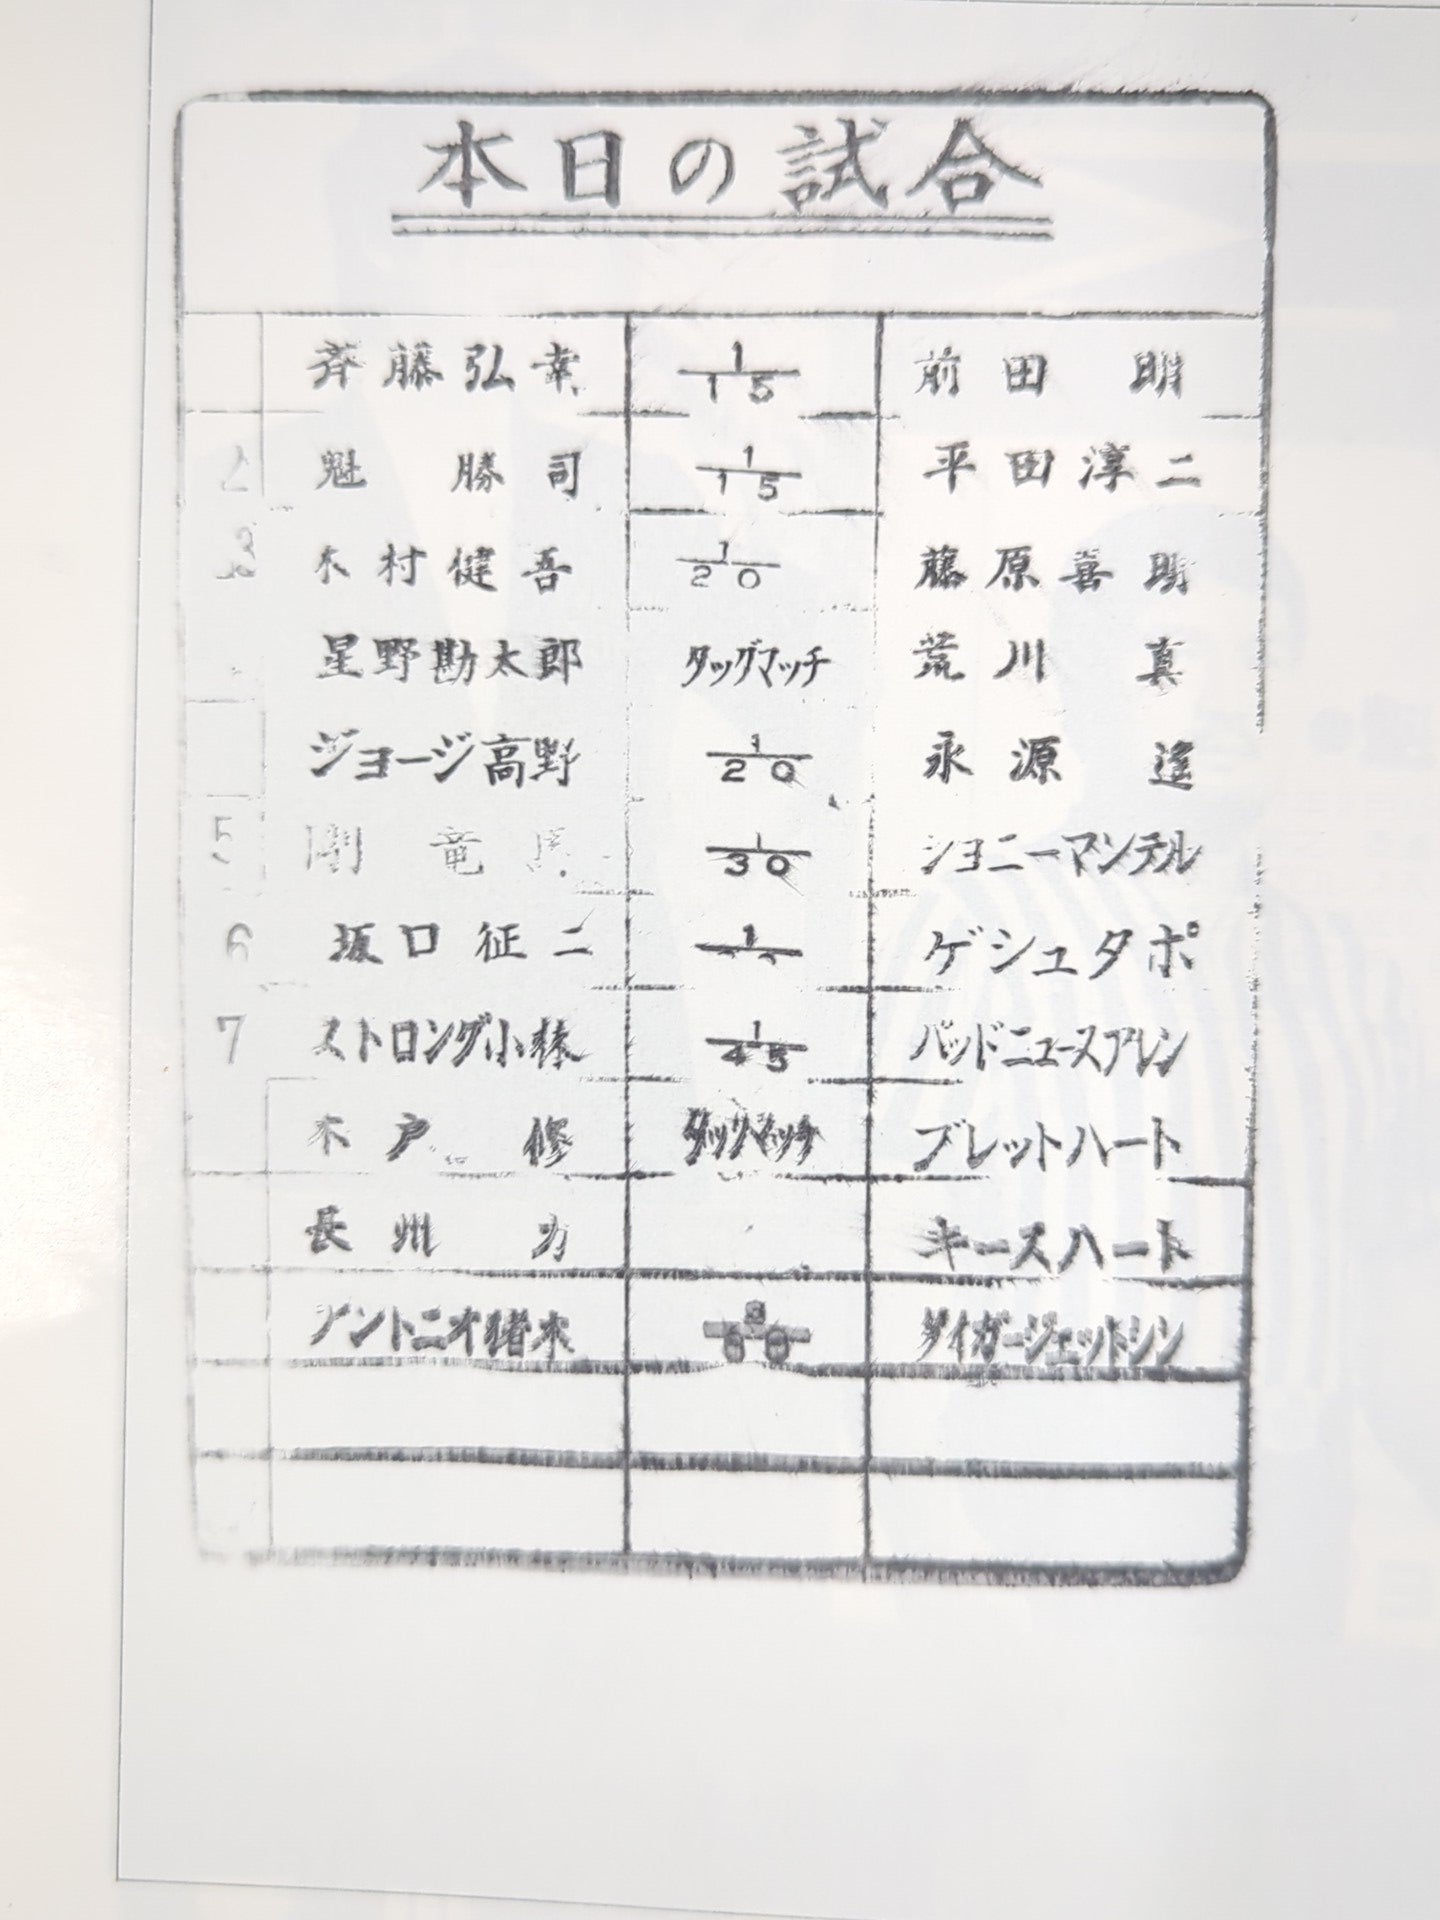 本日の試合
斉藤弘幸 1/15 前田 明
2 魁 勝司 1/15 平田淳二
3 木村健吾 1/20 藤原喜明
星野勘太郎 タッグマッチ 荒川 真
ジョージ高野 1/20 永源 遙
5 剛 竜馬 1/30 ジョニーマンテル
6 坂口征二 ゲシュタポ
7 ストロング小林 1/45 バッドニュースアレン
木戸 修 タッグマッチ ブレットハート
長州 力 キースハート
アントニオ猪木 3/60 タイガージェットシン